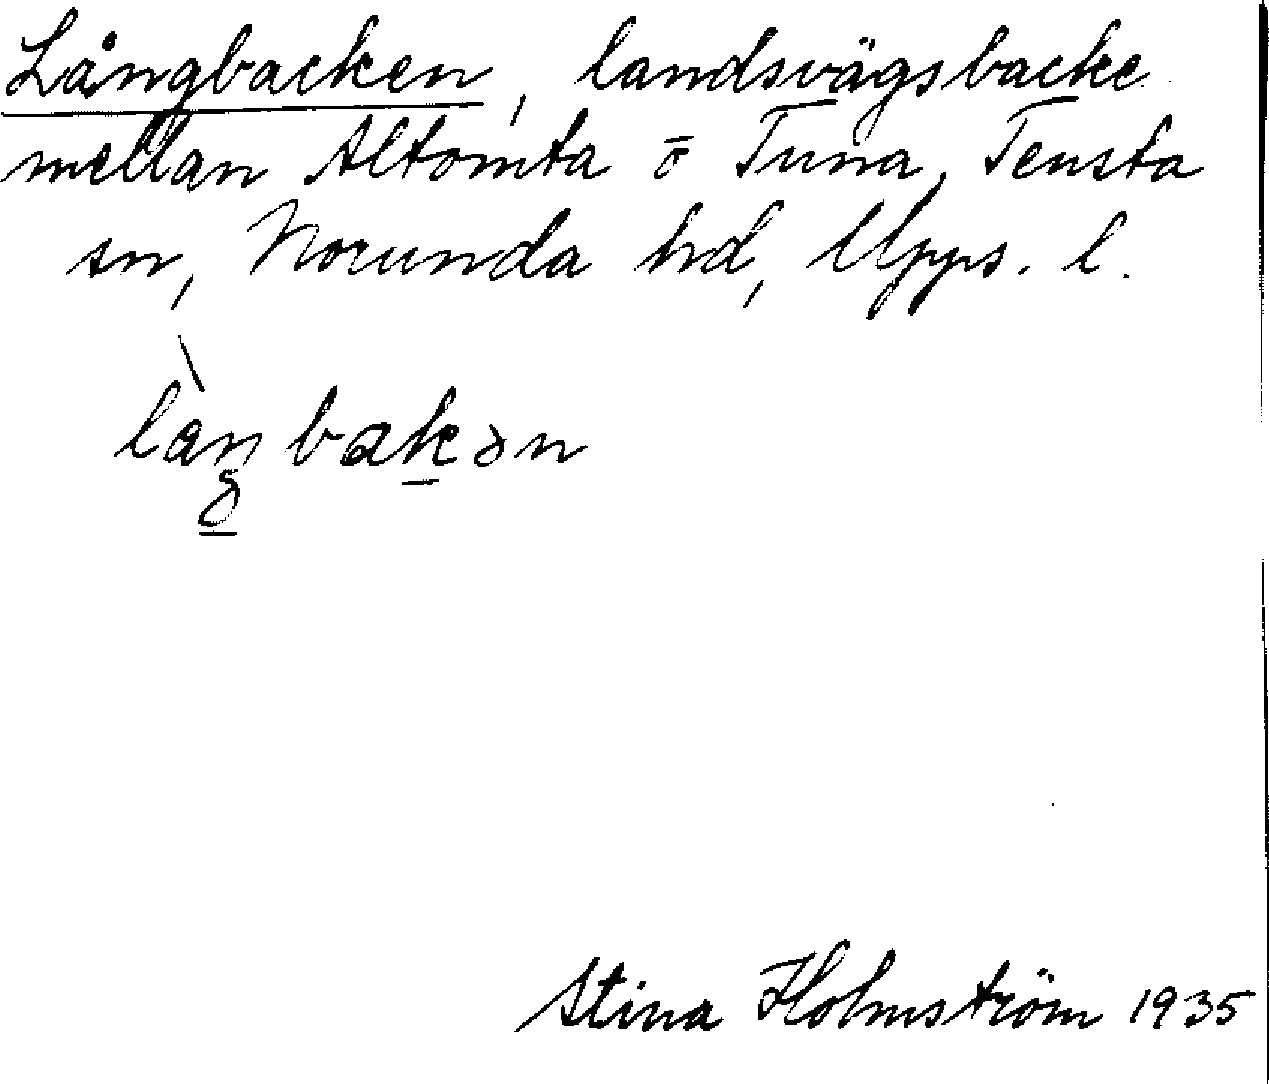 Långbacken, landsvägsbacke
mellan Altomta o Tuna, Tensta
sn, Norunda hd, Upps. l.
làŋbakən
Stina Holmström 1935